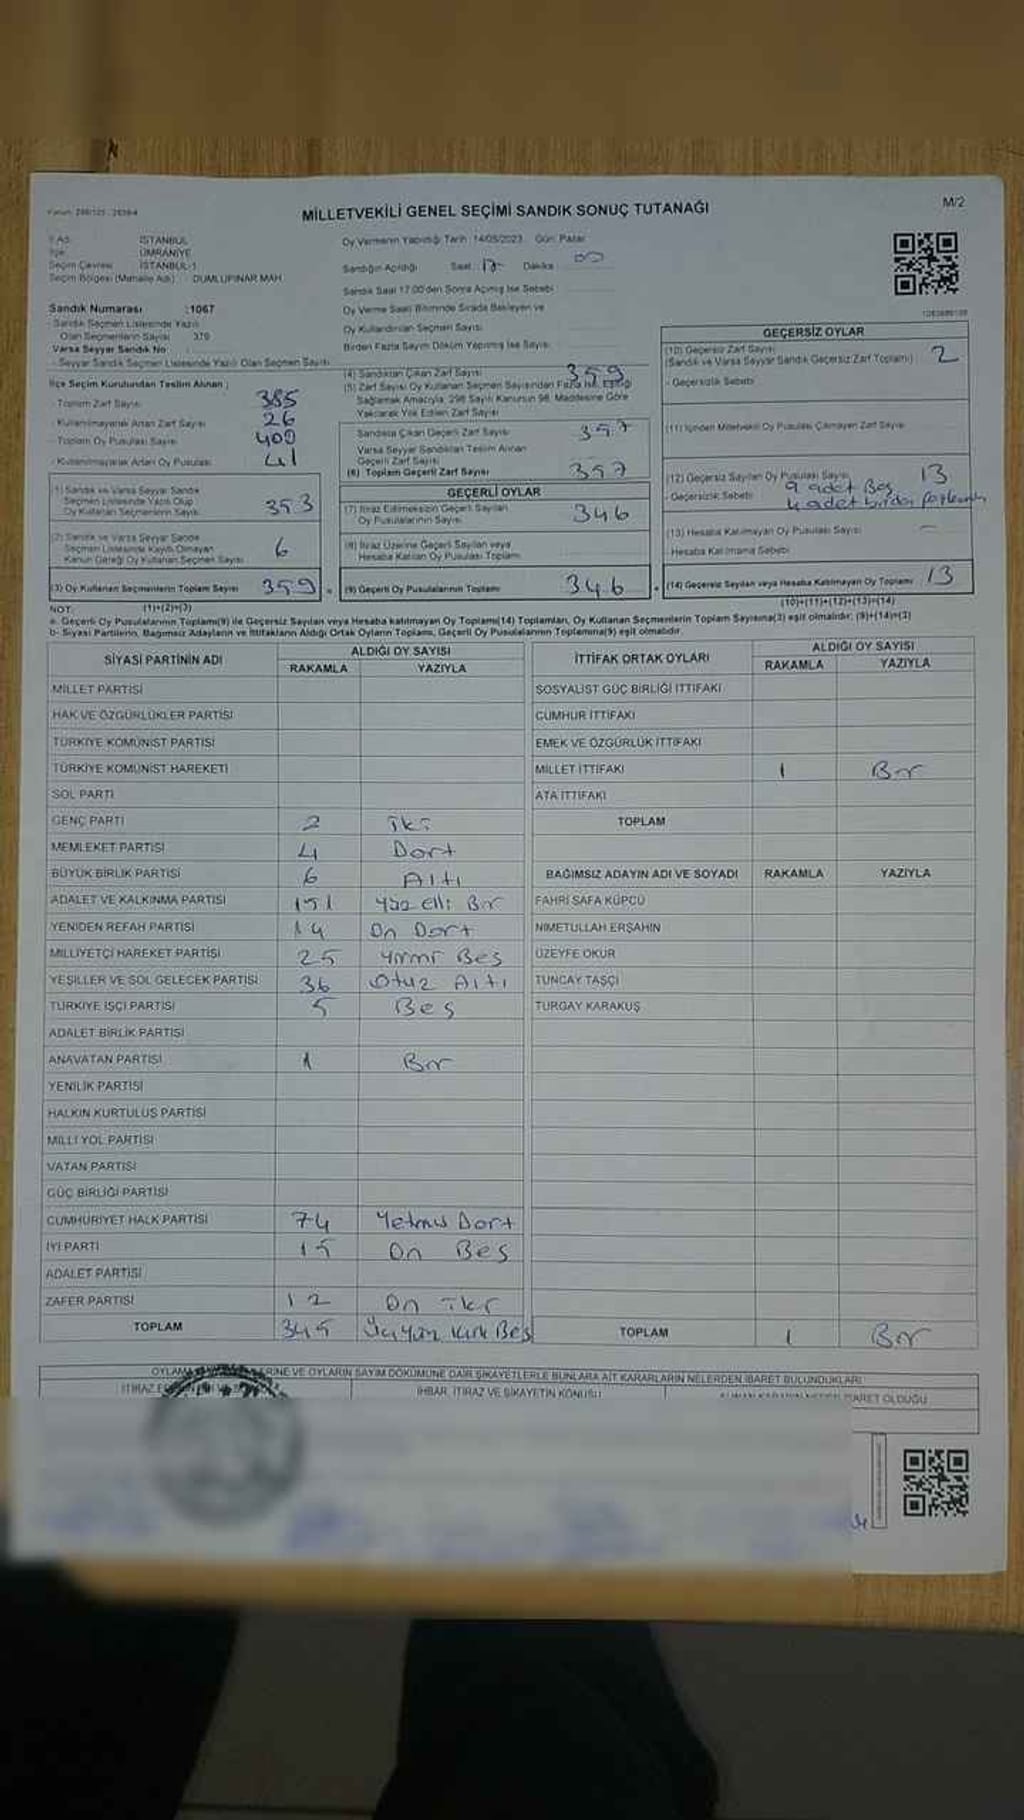 MİLLETVEKİLİ GENEL SEÇİMİ SANDIK SONUÇ TUTANAĞI
M/2
İSTANBUL
ÜMRANİYE
Seçim Çevresi : İSTANBUL-1
Seçim Bölgesi (Mahalle Adı) : DUMLUPINAR MAH.
Oy Vermenin Yapıldığı Tarih : 14/05/2023 Gün: Pazar
Sandığın Açıldığı Saat : 17 Dakika : 00
Sandık Saat 17:00'den Sonra Açılmış İse Sebebi
Oy Verme Saati Bitiminde Sırada Bekleyen ve
Oy Kullandırılan Seçmen Sayısı
Birden Fazla Sayım Döküm Yapılmış İse Sayısı
Sandık Numarası : 1067
Sandık Seçmen Listesinde Yazılı
Olan Seçmenlerin Sayısı 379
Varsa Seyyar Sandık No
Seyyar Sandık Seçmen Listesinde Yazılı Olan Seçmen Sayısı
İlçe Seçim Kurulundan Teslim Alınan ;
- Toplam Zarf Sayısı 385
- Kullanılmayarak Artan Zarf Sayısı 26
- Toplam Oy Pusulası Sayısı 400
- Kullanılmayarak Artan Oy Pusulası 41
(1) Sandık ve Varsa Seyyar Sandık
Seçmen Listesinde Yazılı Olup
Oy Kullanan Seçmenlerin Sayısı 353
(2) Sandık ve Varsa Seyyar Sandık
Seçmen Listesinde Kayıtlı Olmayan
Kanun Gereği Oy Kullanan Seçmen Sayısı 6
(3) Oy Kullanan Seçmenlerin Toplam Sayısı 359
(1)+(2)=(3)
(4) Sandıktan Çıkan Zarf Sayısı 359
(5) Zarf Sayısı Oy Kullanan Seçmen Sayısından Fazla ise, Eşitliği
Sağlamak Amacıyla, 298 Sayılı Kanunun 98. Maddesine Göre
Yakılarak Yok Edilen Zarf Sayısı
Sandıkta Çıkan Geçerli Zarf Sayısı 357
Varsa Seyyar Sandıktan Teslim Alınan
Geçerli Zarf Sayısı
(6) Toplam Geçerli Zarf Sayısı 357
GEÇERLİ OYLAR
(7) İtiraz Edilmeksizin Geçerli Sayılan
Oy Pusulalarının Sayısı 346
(8) İtiraz Üzerine Geçerli Sayılan veya
Hesaba Katılan Oy Pusulası Toplamı
(9) Geçerli Oy Pusulalarının Toplamı 346
GEÇERSİZ OYLAR
(10) Geçersiz Zarf Sayısı
(Sandık ve Varsa Seyyar Sandık Geçersiz Zarf Toplamı) 2
- Geçersizlik Sebebi
(11) İçinden Milletvekili Oy Pusulası Çıkmayan Zarf Sayısı
(12) Geçersiz Sayılan Oy Pusulası Sayısı 13
- Geçersizlik Sebebi 9 adet Boş
4 adet birden fazla
(13) Hesaba Katılmayan Oy Pusulası Sayısı -
Hesaba Katılmama Sebebi
(14) Geçersiz Sayılan veya Hesaba Katılmayan Oy Toplamı 13
(10)+(11)+(12)+(13)=(14)
NOT:
a- Geçerli Oy Pusulalarının Toplamı(9) ile Geçersiz Sayılan veya Hesaba katılmayan Oy Toplamı(14) Toplamları, Oy Kullanan Seçmenlerin Toplam Sayısına(3) eşit olmalıdır. (9)+(14)=(3)
b- Siyasi Partilerin, Bağımsız Adayların ve İttifakların Aldığı Ortak Oyların Toplamı, Geçerli Oy Pusulalarının Toplamına(9) eşit olmalıdır.
SİYASİ PARTİNİN ADI
ALDIĞI OY SAYISI
RAKAMLA YAZIYLA
MİLLET PARTİSİ
HAK VE ÖZGÜRLÜKLER PARTİSİ
TÜRKİYE KOMÜNİST PARTİSİ
TÜRKİYE KOMÜNİST HAREKETİ
SOL PARTİ
GENÇ PARTİ 2 İki
MEMLEKET PARTİSİ 4 Dört
BÜYÜK BİRLİK PARTİSİ 6 Altı
ADALET VE KALKINMA PARTİSİ 151 Yüz elli Bir
YENİDEN REFAH PARTİSİ 14 On Dört
MİLLİYETÇİ HAREKET PARTİSİ 25 Yirmi Beş
YEŞİLLER VE SOL GELECEK PARTİSİ 36 Otuz Altı
TÜRKİYE İŞÇİ PARTİSİ 5 Beş
ADALET BİRLİK PARTİSİ
ANAVATAN PARTİSİ 1 Bir
YENİLİK PARTİSİ
HALKIN KURTULUŞ PARTİSİ
MİLLİ YOL PARTİSİ
VATAN PARTİSİ
GÜÇ BİRLİĞİ PARTİSİ
CUMHURİYET HALK PARTİSİ 74 Yetmiş Dört
İYİ PARTİ 15 On Beş
ADALET PARTİSİ
ZAFER PARTİSİ 12 On İki
TOPLAM 345 Üçyüz Kırk Beş
İTTİFAK ORTAK OYLARI
ALDIĞI OY SAYISI
RAKAMLA YAZIYLA
SOSYALİST GÜÇ BİRLİĞİ İTTİFAKI
CUMHUR İTTİFAKI
EMEK VE ÖZGÜRLÜK İTTİFAKI
MİLLET İTTİFAKI 1 Bir
ATA İTTİFAKI
TOPLAM
BAĞIMSIZ ADAYIN ADI VE SOYADI RAKAMLA YAZIYLA
FAHRİ SAFA KÜPCÜ
NİMETULLAH ERŞAHİN
ÜZEYFE OKUR
TUNCAY TAŞÇI
TURGAY KARAKUŞ
TOPLAM 1 Bir
OYLAMA VE OYLARIN SAYIM DÖKÜMÜNE DAİR ŞİKAYETLERLE BUNLARA AİT KARARLARIN NELERDEN İBARET BULUNDUKLARI
İHBAR, İTİRAZ VE ŞİKAYETİN KONUSU
İBARET OLDUĞU